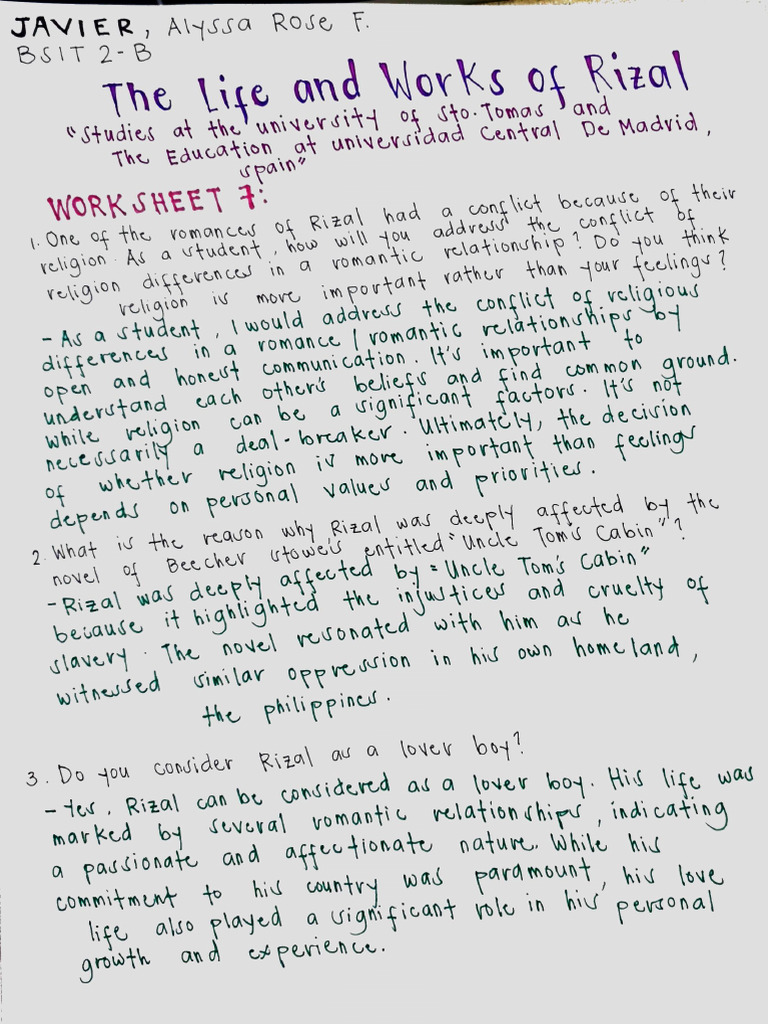 JAVIER, Alyssa Rose F.
BSIT 2-B
The Life and Works of Rizal
"Studies at the university of Sto. Tomas and
The Education at universidad Central De Madrid,
spain"
WORKSHEET 7:
1. One of the romances of Rizal had a conflict because of their
religion. As a student, how will you address the conflict of
religion differences in a romantic relationship? Do you think
religion is more important rather than your feelings?
- As a student, I would address the conflict of religious
differences in a romance / romantic relationships by
open and honest communication. It's important to
understand each other's beliefs and find common ground.
while religion can be a significant factors. It's not
necessarily a deal-breaker. Ultimately, the decision
of whether religion is more important than feelings
depends on personal values and priorities.
2. What is the reason why Rizal was deeply affected by the
novel of Beecher stowe's entitled "Uncle Tom's Cabin"?
- Rizal was deeply affected by "Uncle Tom's Cabin"
because it highlighted the injustices and cruelty of
slavery. The novel resonated with him as he
witnessed similar oppression in his own homeland,
the philippines.
3. Do you consider Rizal as a lover boy?
- Yes, Rizal can be considered as a lover boy. His life was
marked by several romantic relationships, indicating
a passionate and affectionate nature. While his
commitment to his country was paramount, his love
life also played a significant role in his personal
growth and experience.